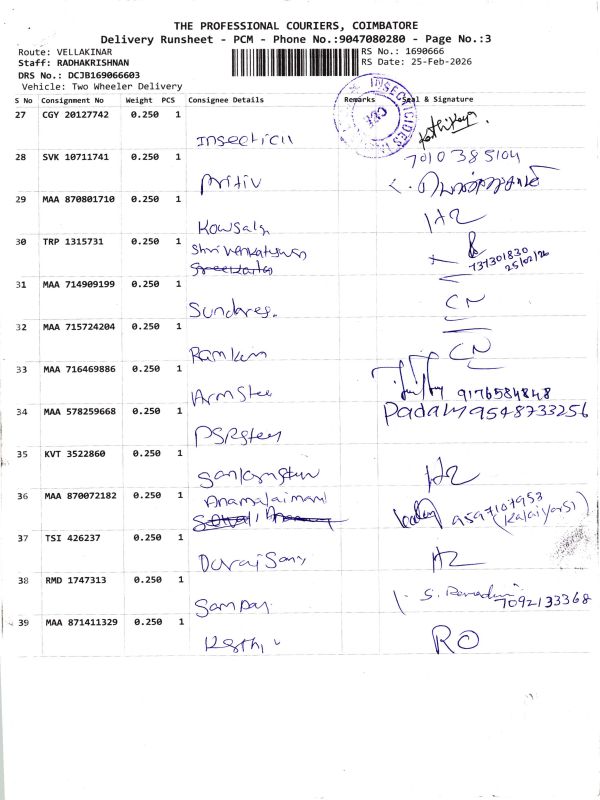 THE PROFESSIONAL COURIERS, COIMBATORE
Delivery Runsheet - PCM - Phone No.:9047080280 - Page No.:3
Route: VELLAKINAR
RS No.: 1690666
Staff: RADHAKRISHNAN
RS Date: 25-Feb-2026
DRS No.: DCJB169066603
Vehicle: Two Wheeler Delivery
S No Consignment No Weight PCS Consignee Details Remarks Seal & Signature
27 CGY 20127742 0.250 1
INSECTICIDES
Insecticil
28 SVK 10711741 0.250 1
7010385104
Pritiv
29 MAA 870801710 0.250 1
H2
Kowsaly
30 TRP 1315731 0.250 1
Shri Venkateswar
737301830
25/02/26
31 MAA 714909199 0.250 1
CN
Sundares.
32 MAA 715724204 0.250 1
CN
Ramkum
33 MAA 716469886 0.250 1
9176584848
Arm Stee
34 MAA 578259668 0.250 1
Padam 9548733256
PSRSteel
35 KVT 3522860 0.250 1
H2
36 MAA 870072182 0.250 1
Anamalaimani
9597107953
(Kalaiyarsi)
37 TSI 426237 0.250 1
H2
Durai Samy
38 RMD 1747313 0.250 1
7092133368
Sampay
39 MAA 871411329 0.250 1
RO